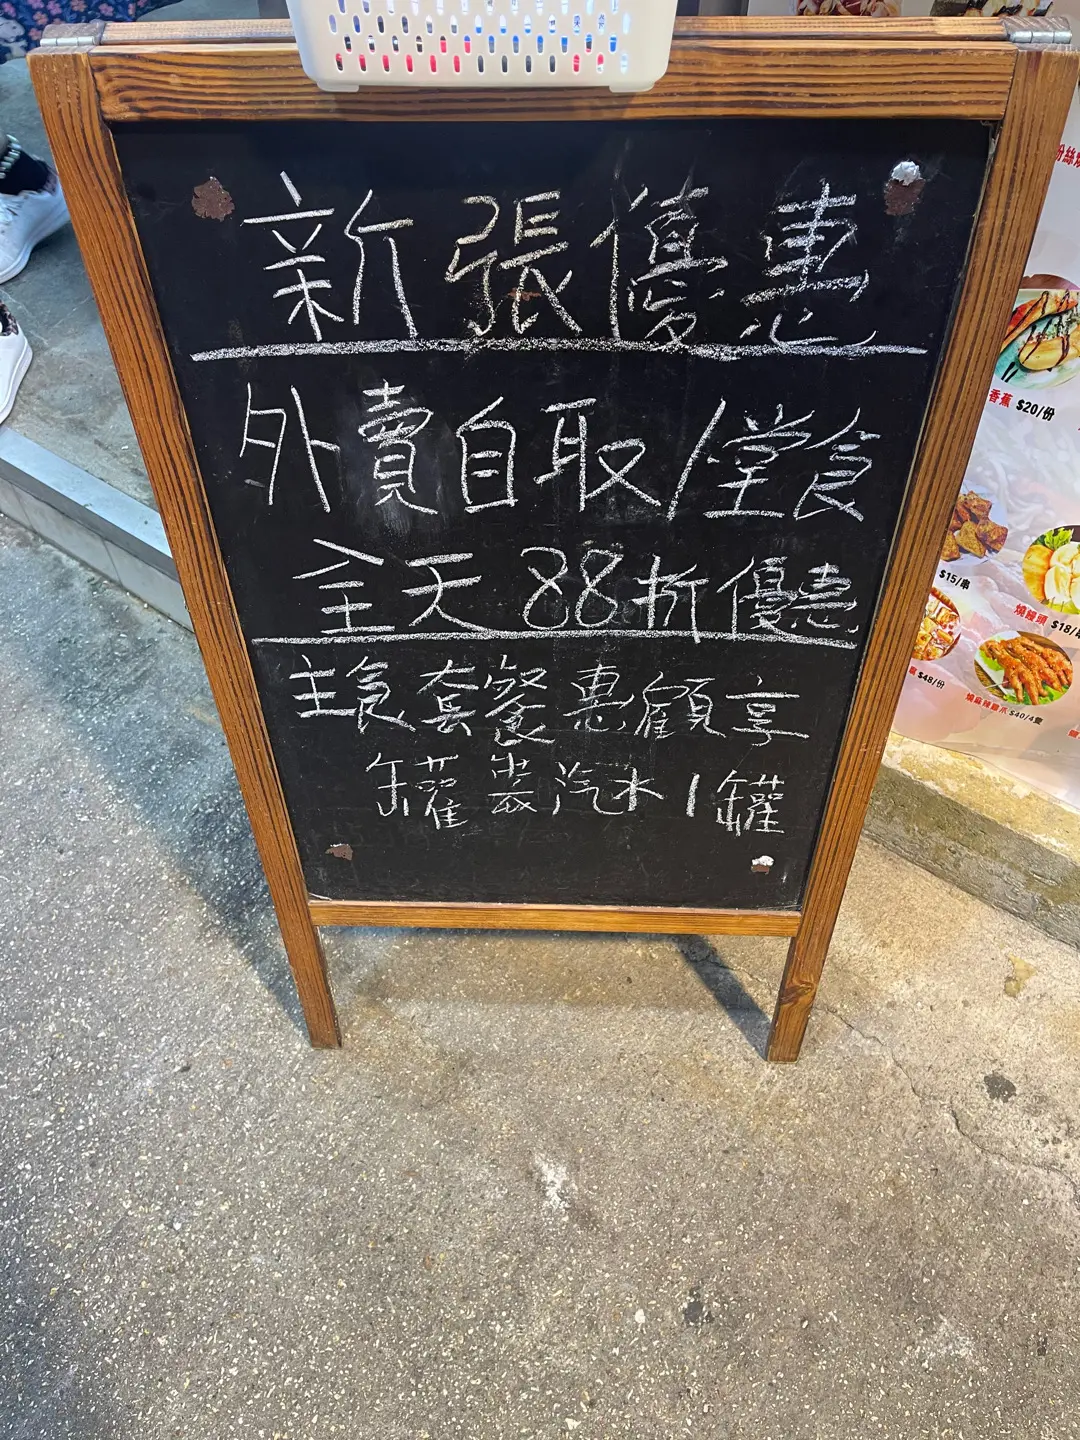 新張優惠
外賣自取/堂食
全天 88折優惠
主食套餐惠顧享
罐裝汽水1罐
香蕉 $20/份
$15/串
燒饅頭 $18/
$48/份
$40/4隻